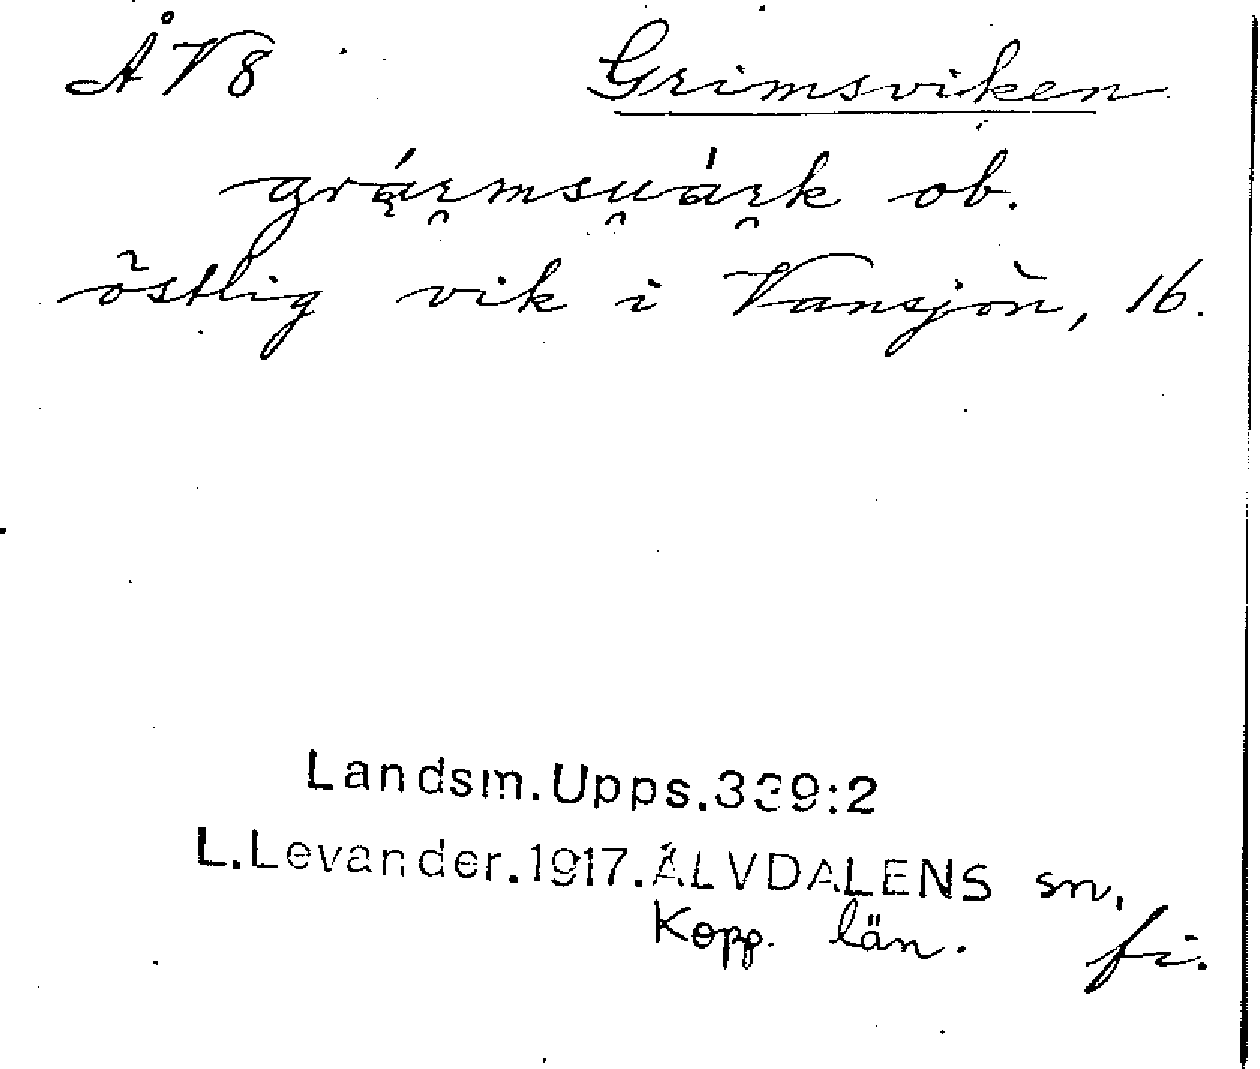 ÅV8 Grimsviken
ob.
östlig vik i Vansjön, 16.
Landsm.Upps.339:2
L.Levander.1917.ÄLVDALENS sn.
Kopp. län. fi.